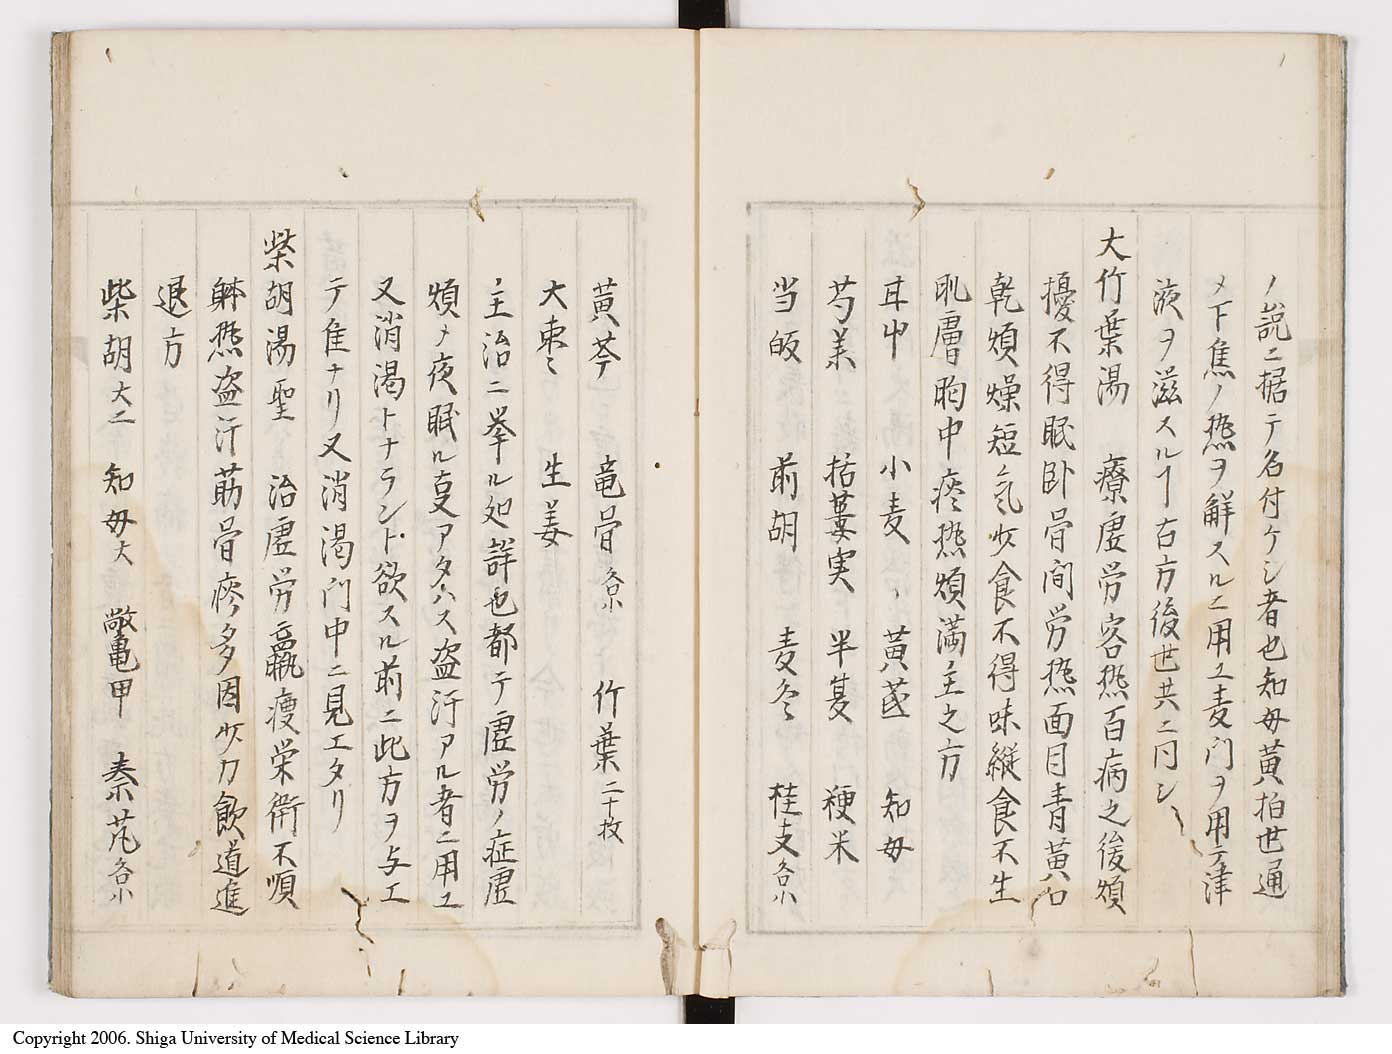 ノ説ニ据テ名付ケシ者也知母黄柏世通
メ下焦ノ熱ヲ解スルニ用ユ麦门ヲ用テ津
液ヲ滋スルヿ右方後世共ニ同シ
大竹葉湯 療虚労客熱百病之後煩
擾不得眠卧骨間労熱面目青黄口
乾煩燥短気少食不得味縦食不生
肌膚胸中痰熱煩満主之方
甘艸 小麦 黄芪 知母
芍薬 括蔞実 半夏 粳米
当皈 前胡 麦冬 桂支各小
黄芩 竜骨各小 竹葉二十枚
大棗 生姜
主治ニ挙ル如詳也都テ虚労ノ症虚
煩メ夜眠ル亊アタハス盗汗アル者ニ用ユ
又消渇トナラント欲スル前ニ此方ヲ与エ
テ佳ナリ又消渇门中ニ見エタリ
柴胡湯聖 治虚労羸痩栄衛不順
躰熱盗汗筋骨疼多困少力飲道進
退方
柴胡大二 知母大 鱉甲 秦艽各小
Copyright 2006. Shiga University of Medical Science Library